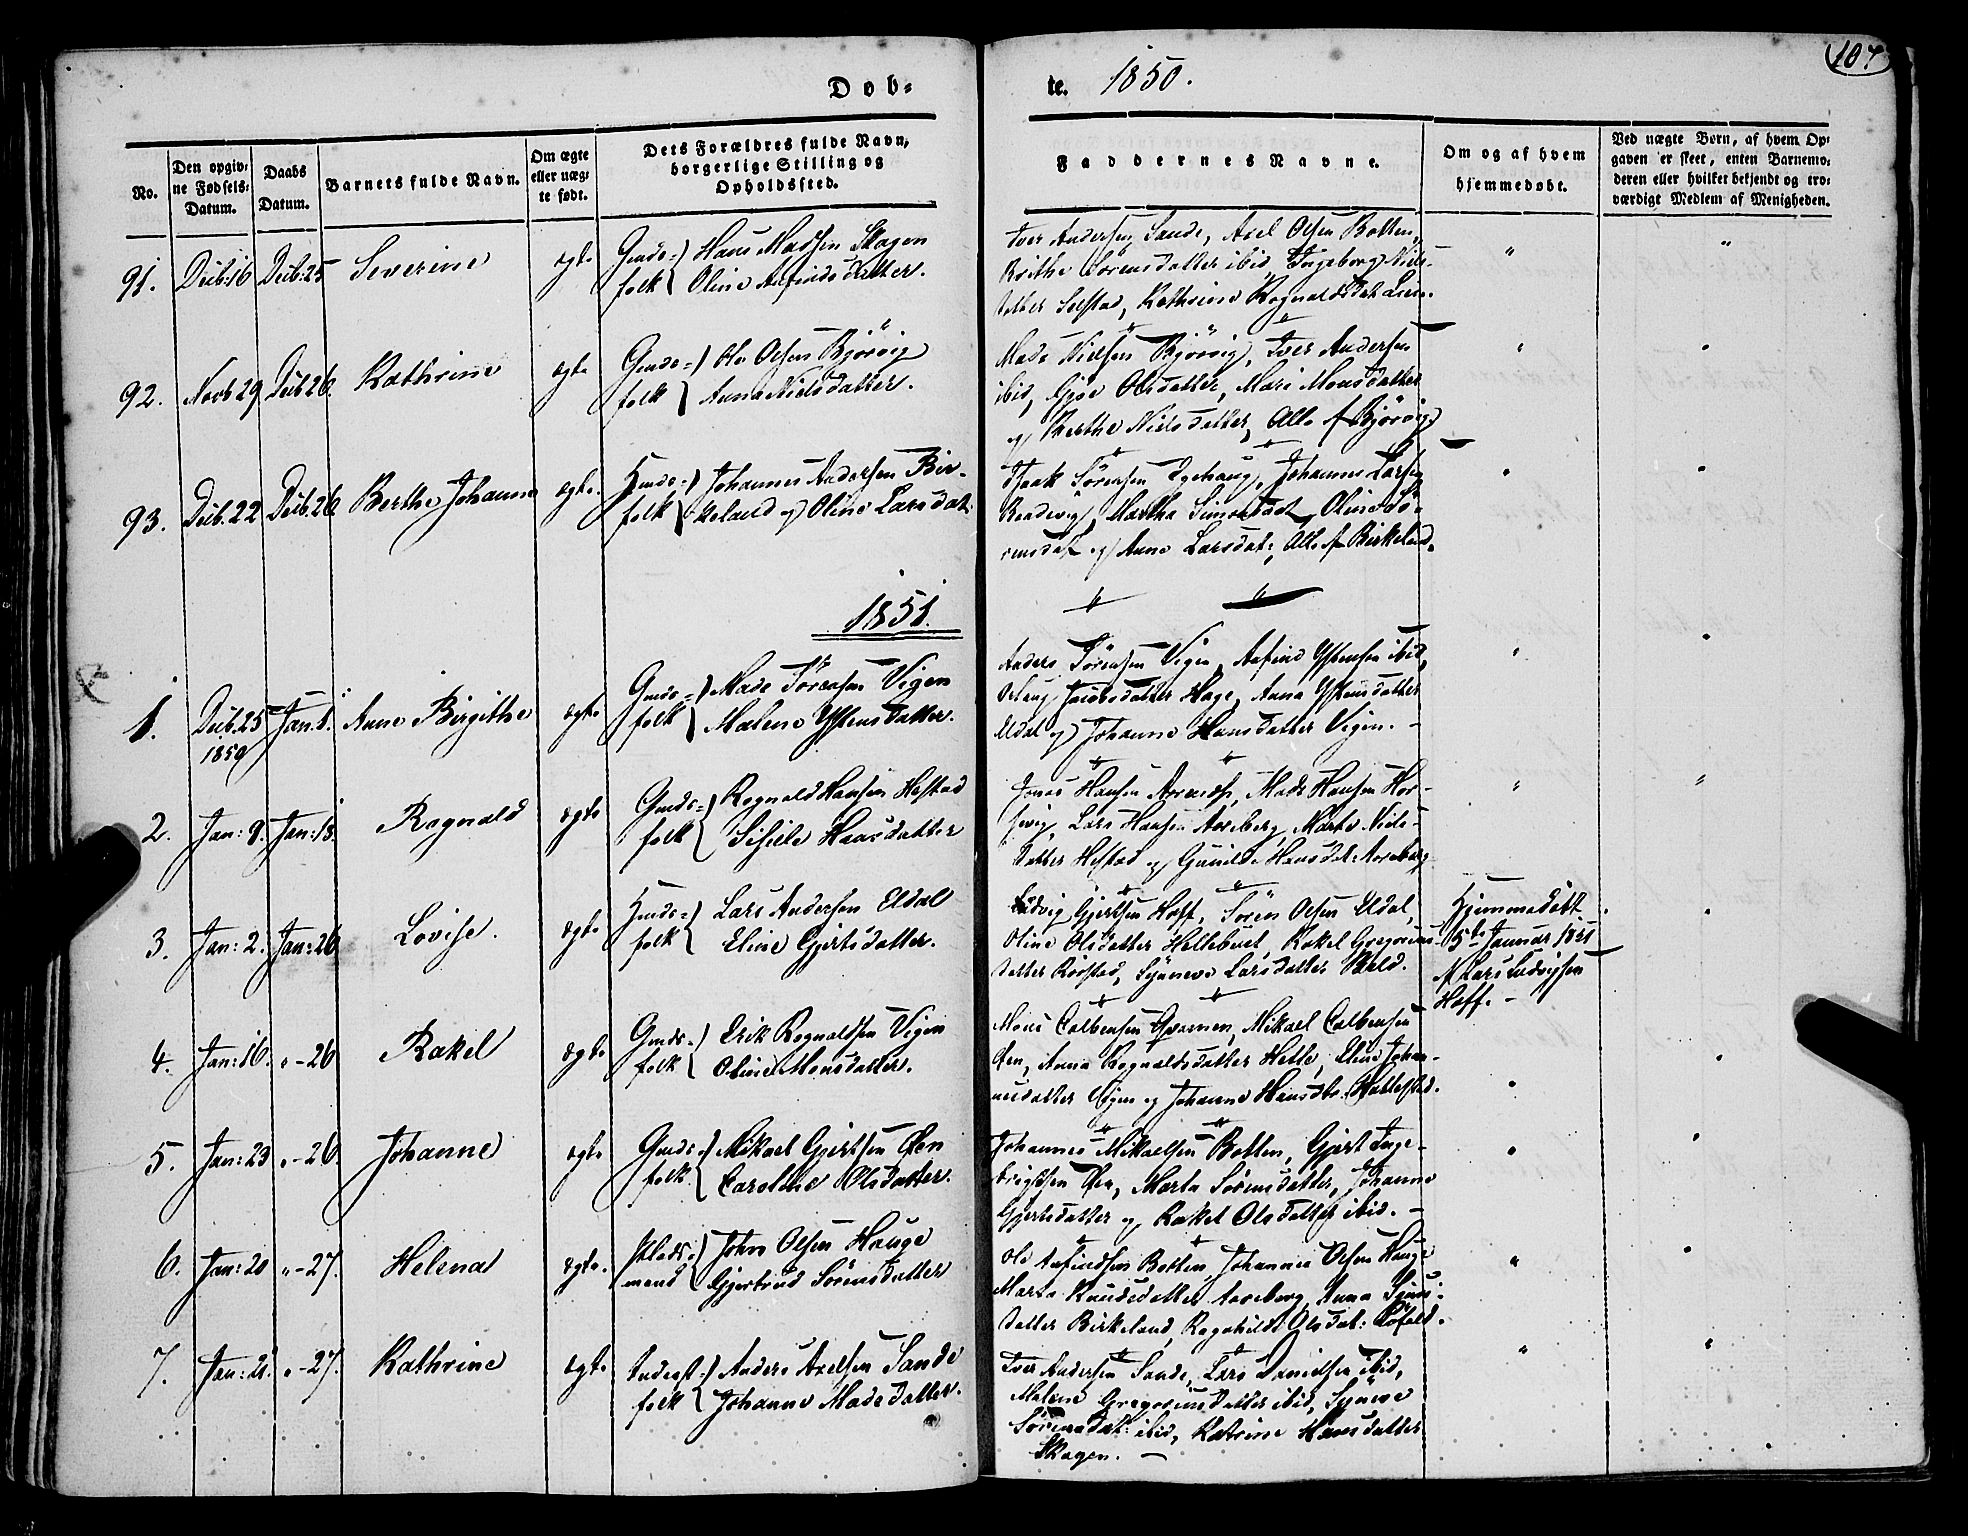 107
Døb-
te. 1850.
No.
Den opgiv-
ne Fødsels-
Datum.
Daabs
Datum.
Barnets fulde Navn.
Om ægte
eller uæg-
te født.
Dets Forældres fulde Navn,
borgerlige Stilling og
Opholdssted.
Faddernes Navne.
Om og af hvem
hjemmedøbt.
Ved uægte Børn, af hvem Op-
gaven er skeet, enten Barnemo-
deren eller hvilket bekjendt og tro-
værdigt Medlem af Menigheden.
91. Decb. 16 Decb. 25 Severine ægte
Gmds- folk
Hans Madsen Skagen
Oline Anfindsdatter.
Iver Andersen Sande, Axel Olsen Botten,
Brithe Sørensdatter ibid, Ingeborg Niels-
datter Selstad, Kathrine Rognaldsdat Lien.
92. Novb 29 Decb 26. Kathrine ægte
Gmds- folk
Ole Olsen Bjørvig
Anna Nielsdatter.
Mads Nielsen Bjørvig, Iver Andersen
ibid, Olsdatter, Mari Monsdatter
og Berthe Nielsdatter, Alle af Bjørvig
93. Decb. 22 Decb. 26 Berthe Johanne ægte.
Huus- folk
Johannes Andersen Bir-
keland og Oline Larsdat:
Isaak Sørensen Johannes Larsen
Martha Oline Sø-
rensdat og Anne Larsdat:, Alle af Birkeland.
1851.
1. Decb. 25 1850 Jan. 1. Anne Birgithe ægte
Gmds- folk
Mads Sørensen Vigen
Malene Ystensdatter.
Anders Sørensen Vigen, Anfind Ystensen ibid,
Jacobsdatter Hage, Anna Ystensdatter
Eldal og Johanne Hansdatter Vigen. -
2. Jan: 9. Jan: 18. Rognald ægte
Gmds- folk
Rognald Hansen Hestad
Sisele Hansdatter
Jonas Hansen Mads Hansen Hor-
sevig, Lars Hansen Aareberg, Marte Niels-
datter Hestad og Gunilde Hansdat: Aareberg
3. Jan: 2. Jan: 26 Lovise. ægte
Huus- folk
Lars Andersen Eldal
Eline Gjertsdatter.
Ludvig Gjertsen Hoff, Søren Olsen Eldal,
Oline Olsdatter Hellebust, Rakel Gregorius-
datter Rørstad, Synneve Larsdatter
Hjemmedøbt
5te Januar 1851
af Lars Ludvigsen
Hoff. -
4. Jan: 16. " - 26 Rakel ægte
Gmds- folk
Erik Rognaldsen Vigen
Oline Monsdatter.
Mons Colbensen Qvamen, Mikael Colbensen
Øen, Anna Rognaldsdatter Hetle, Eline Johan-
nesdatter Vigen og Johanne Hansdtr. Hallestad.
5. Jan: 23 " - 26. Johanne ægte
Gmds- folk
Mikael Gjertsen Øen
Caroline Olsdatter.
Johannes Mikaelsen Botten, Gjert Inge-
brigtsen Øen, Marta Sørensdatter, Johanne
Gjertsdatter og Rakel Olsdatter ibid. -
6. Jan: 20 " - 27. Helena ægte.
Plads- mand
John Olsen Hauge
Gjertrud Sørensdatter
Ole Anfindsen Botten, Johannes Olsen Hauge
Marta Knudsdatter Aareberg, Anna
datter Birkeland, Ragnhilde Olsdat:
7. Jan: 21. " - 27. Kathrine ægte
folk
Anders Axelsen Sande
Johanne Madsdatter.
Iver Andersen Sande, Lars Danielsen ibid,
Malene Gregoriusdatter ibid, Synneve
Sørensdat: ibid, Katrine Hansdatter
Skagen. -